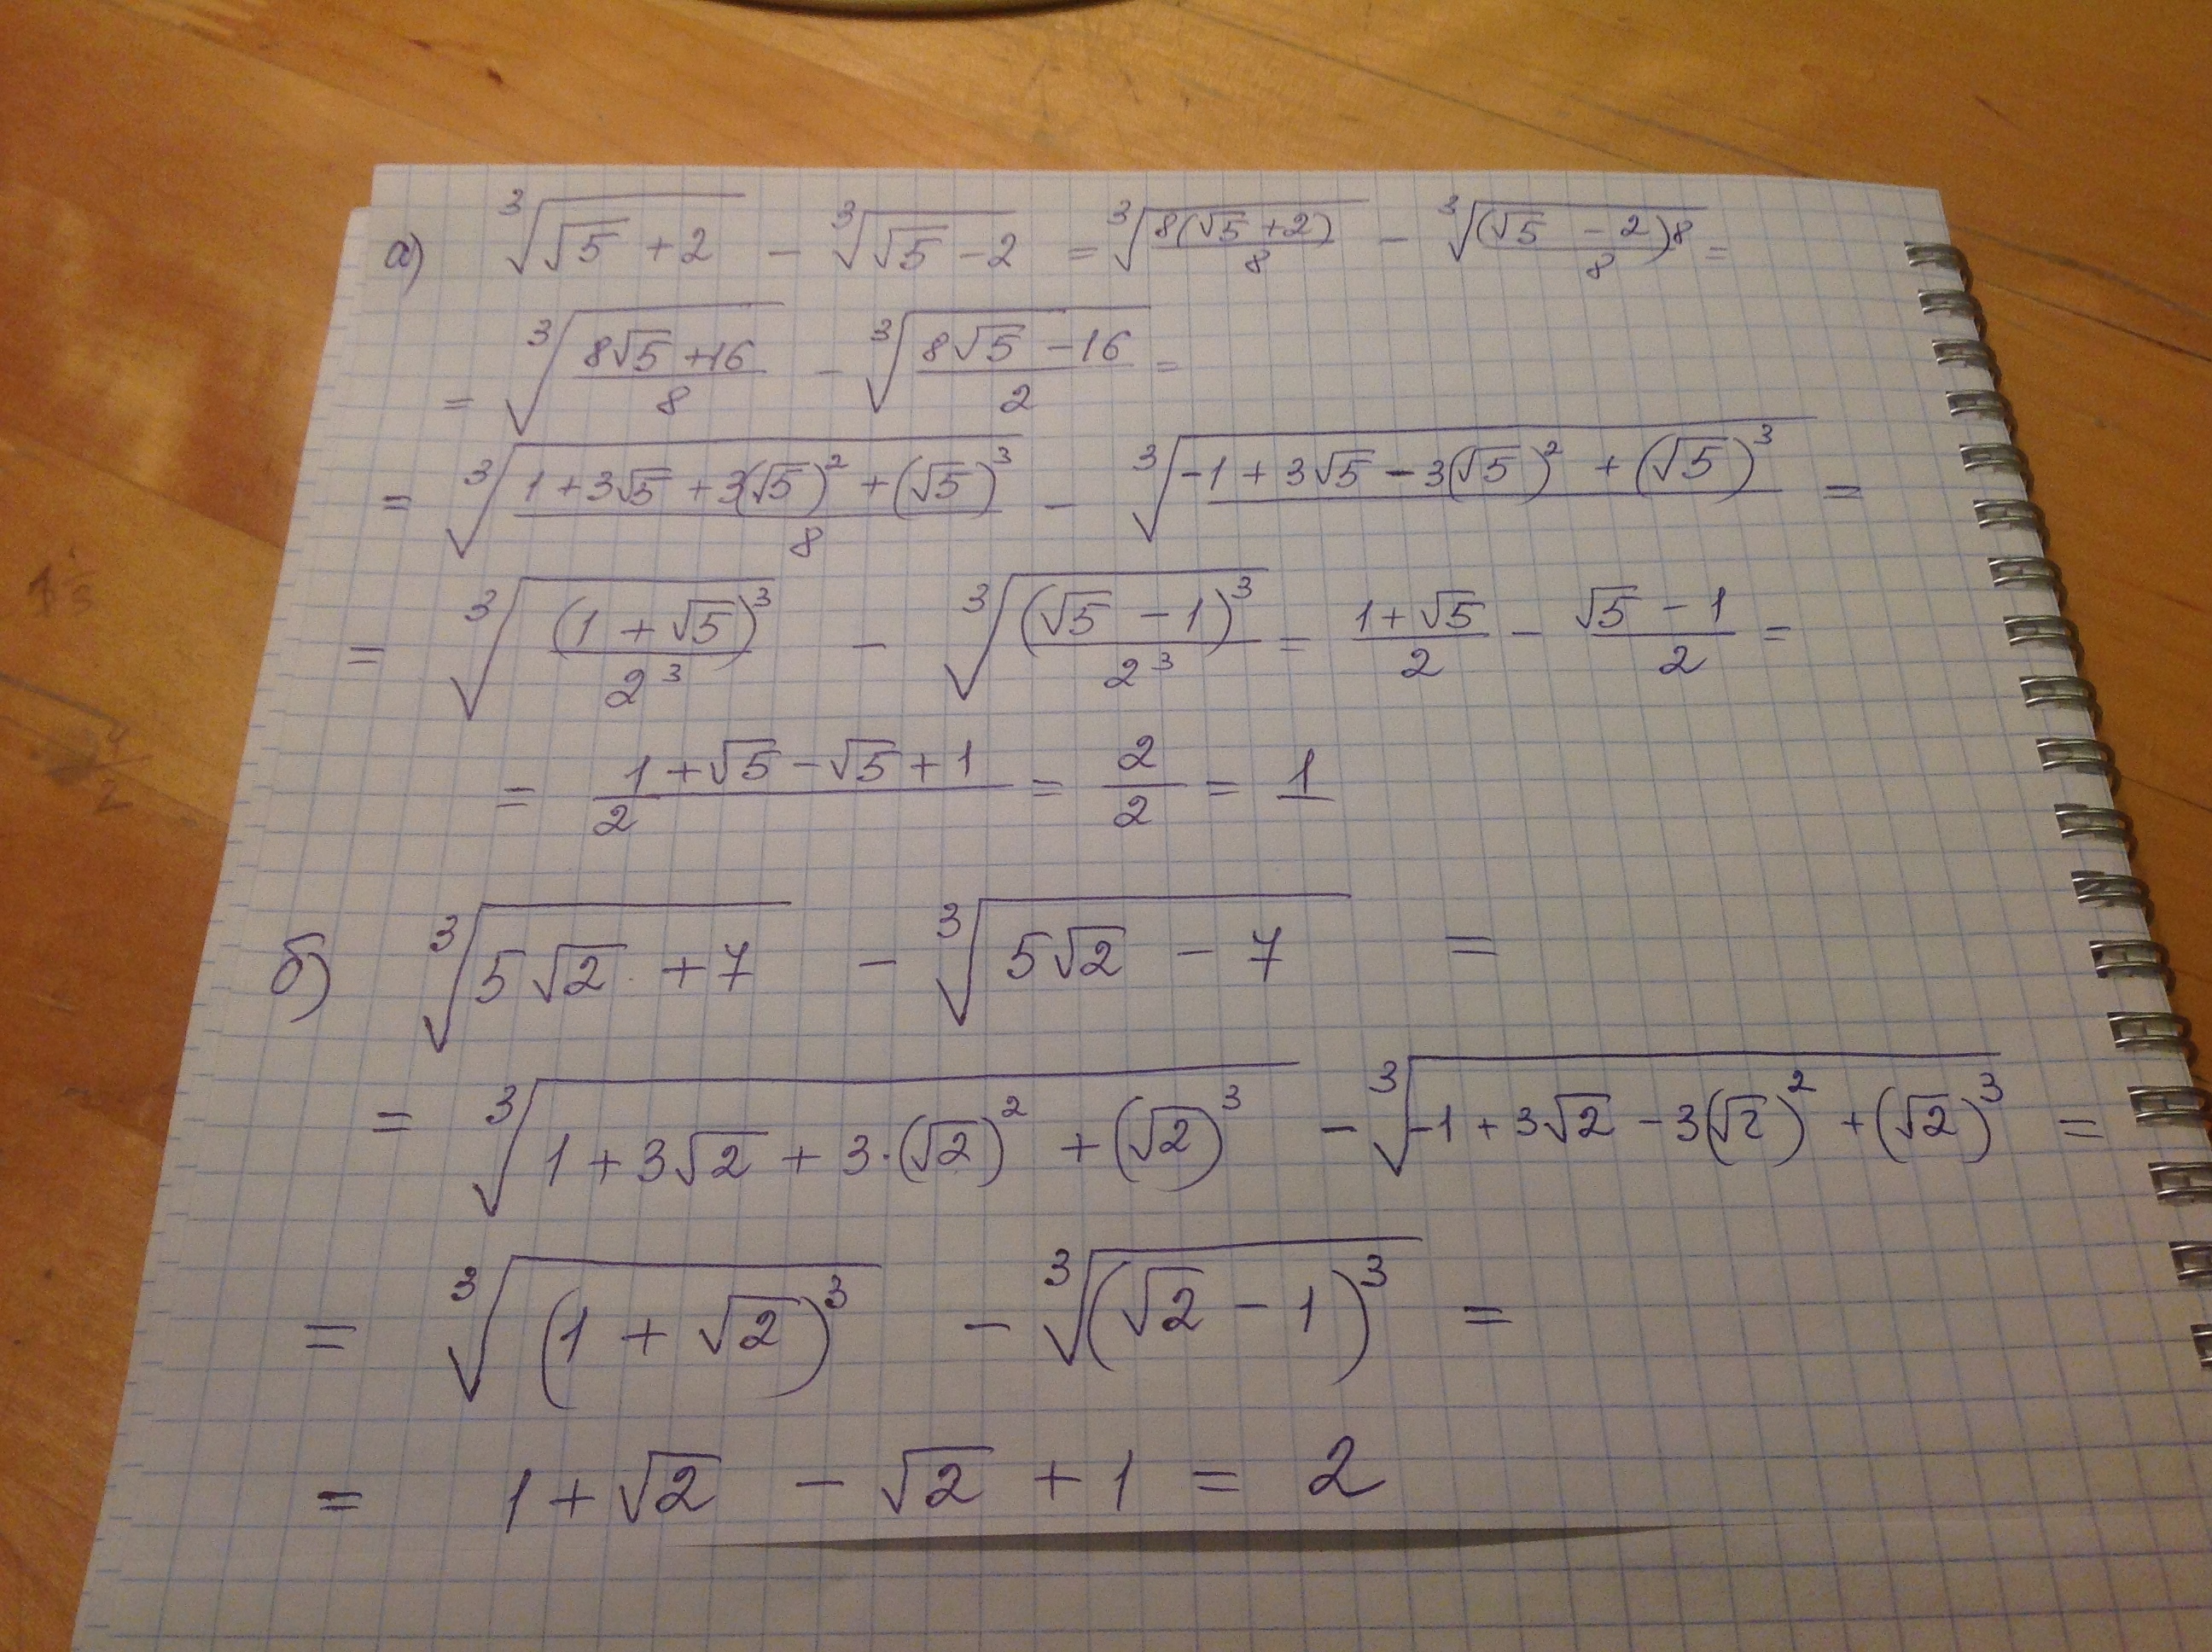 а) ∛(√5 + 2) - ∛(√5 - 2) = ∛(8(√5 + 2)/8) - ∛((√5 - 2)8/8) =
= ∛((8√5 + 16)/8) - ∛((8√5 - 16)/2) =
= ∛((1 + 3√5 + 3(√5)² + (√5)³)/8) - ∛(-1 + 3√5 - 3(√5)² + (√5)³) =
= ∛((1 + √5)³/2³) - ∛((√5 - 1)³/2³) = (1 + √5)/2 - (√5 - 1)/2 =
= (1 + √5 - √5 + 1)/2 = 2/2 = 1
б) ∛(5√2 + 7) - ∛(5√2 - 7) =
= ∛(1 + 3√2 + 3·(√2)² + (√2)³) - ∛(-1 + 3√2 - 3(√2)² + (√2)³) =
= ∛((1 + √2)³) - ∛((√2 - 1)³) =
= 1 + √2 - √2 + 1 = 2